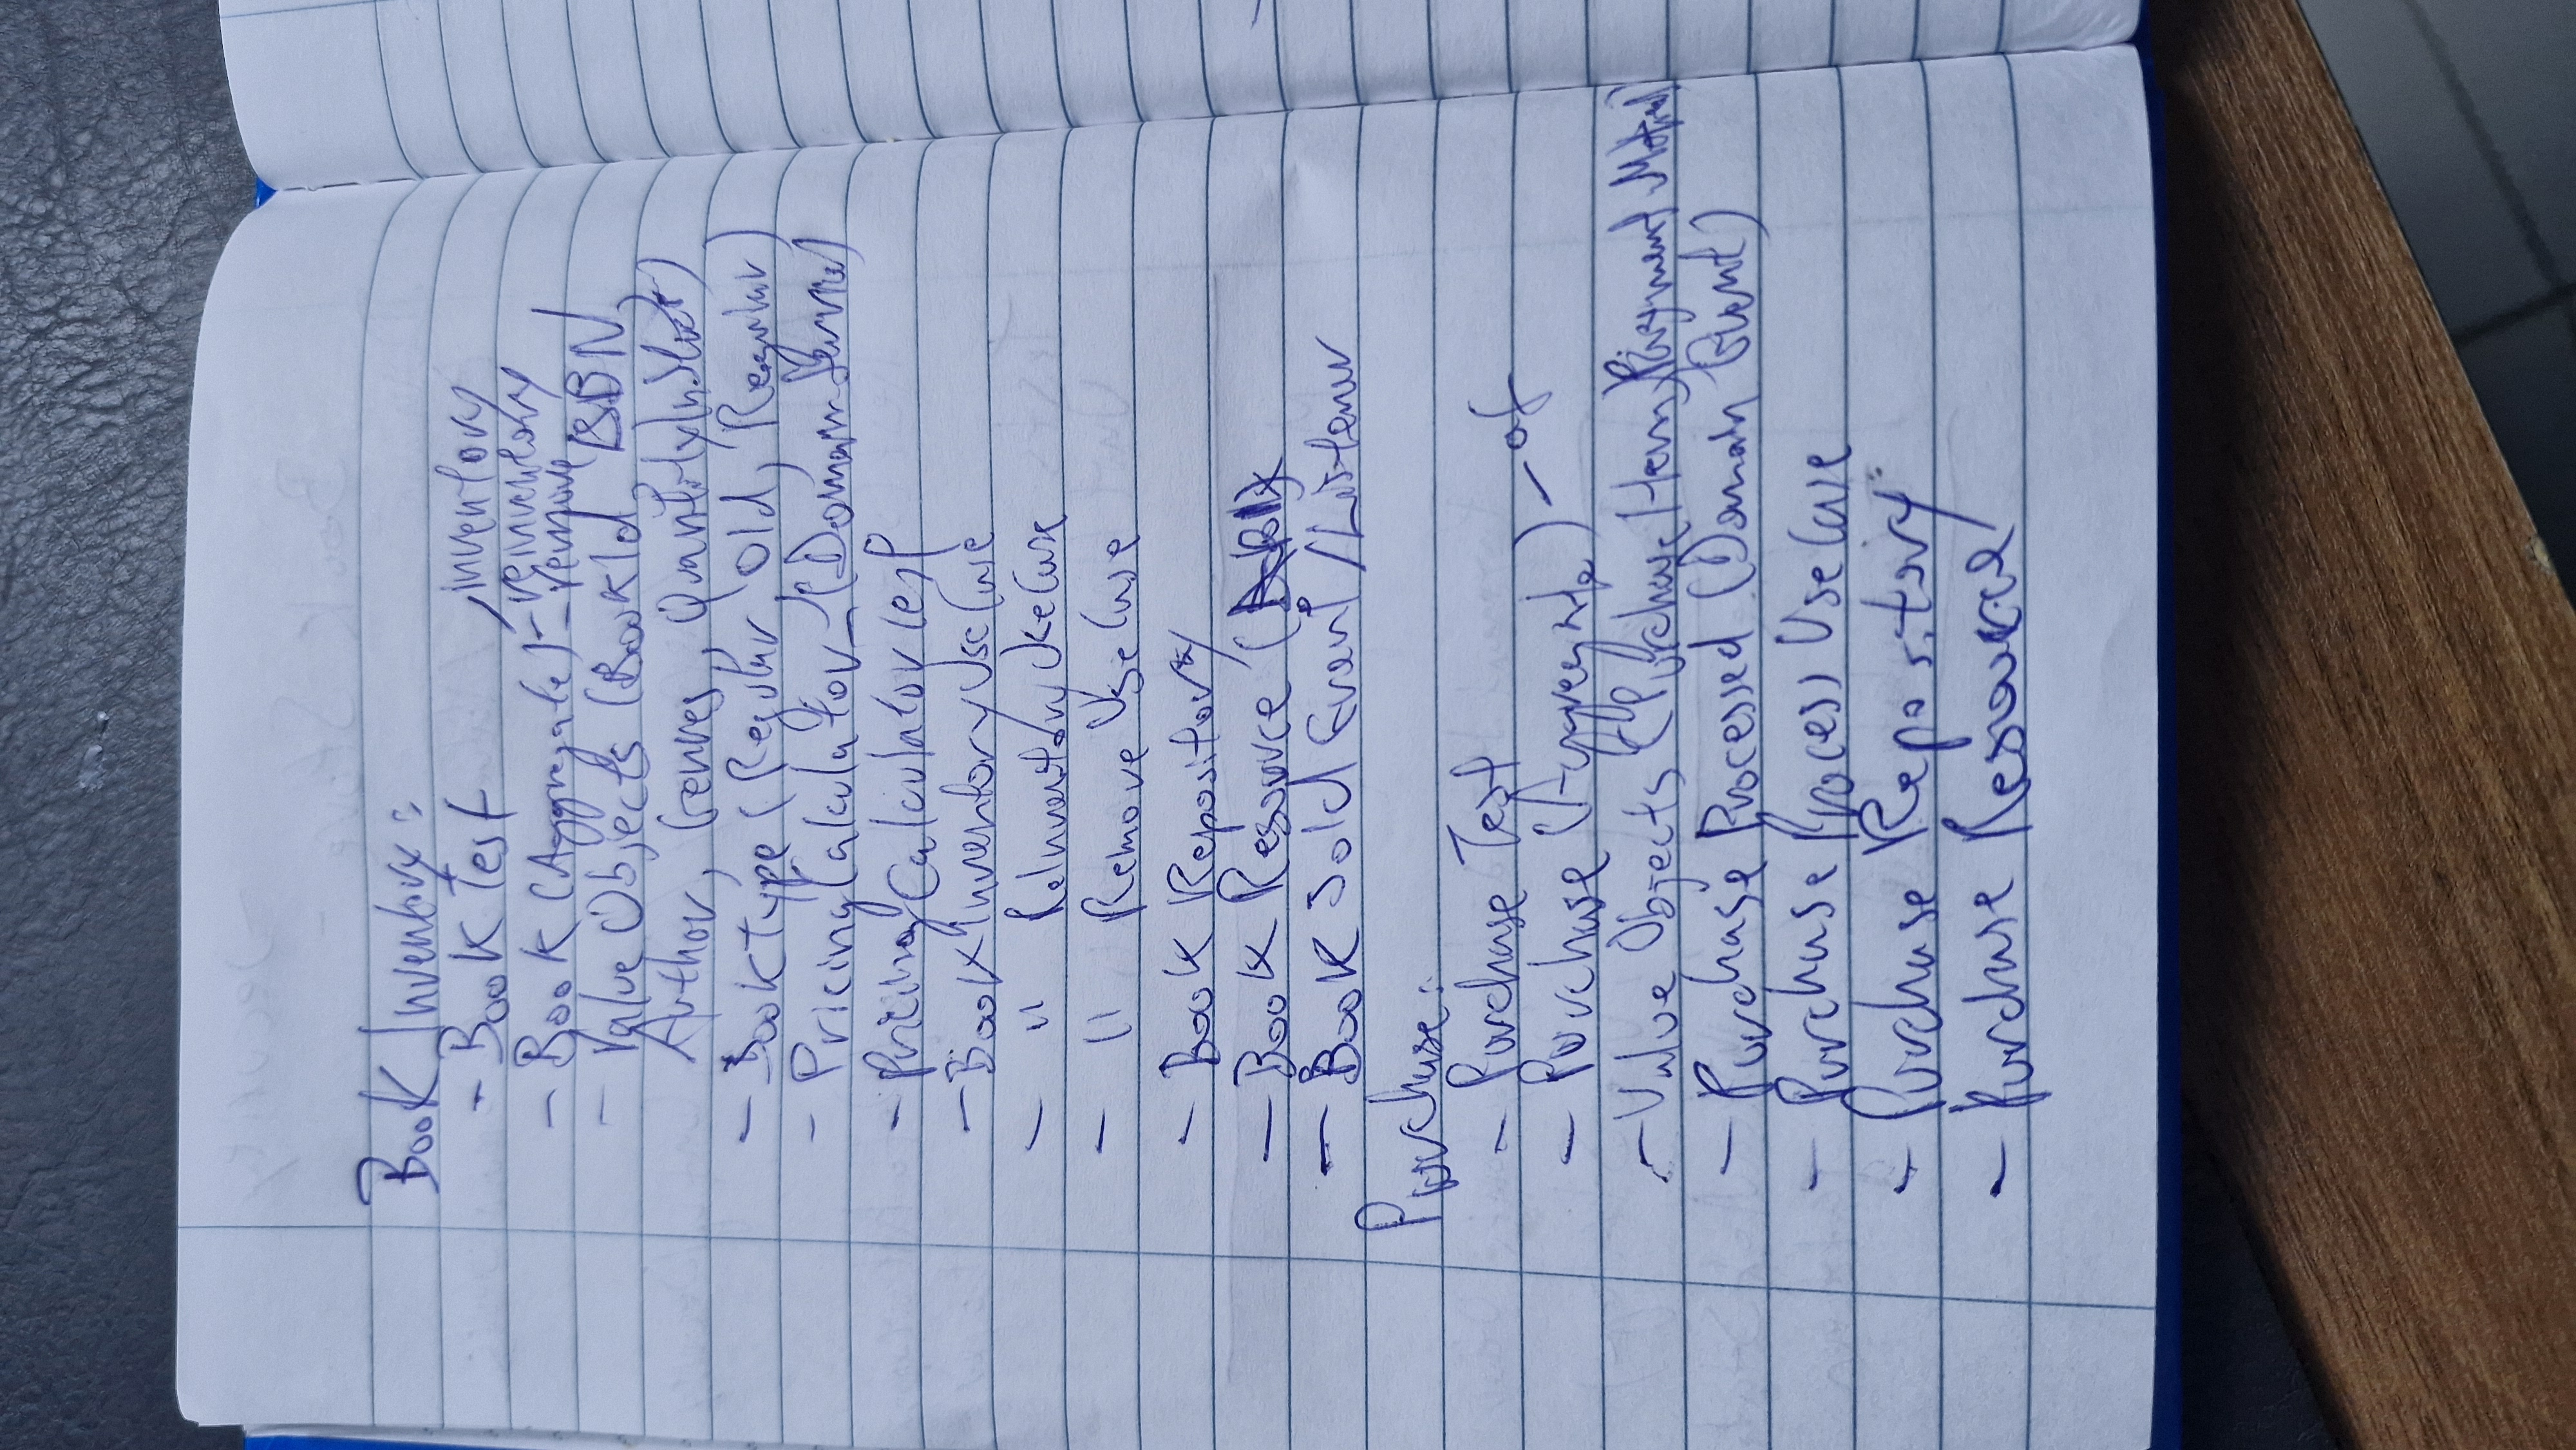 Book Inventory:
- Book Test
inventory
- Book (Aggregate) - reinventory
- remove
- Value Objects (BookId, ISBN,
Author, Genres, QuantityInStock)
- BookType (Regular, Old, Regular)
- PricingCalculator - (Domain Service)
- PricingCalculatorTest
- BookInventoryUseCase
- " ReInventoryUseCase
- " Remove UseCase
- Book Repository
- Book Resource (API)
- Book Sold Event / Listener
Purchase:
- Purchase Test
- Purchase (Aggregate) - of
- Value Objects (Purchase Item, Payment Method)
- Purchase Processed (Domain Event)
- Purchase Process UseCase
- Purchase Repository
- Purchase Resource